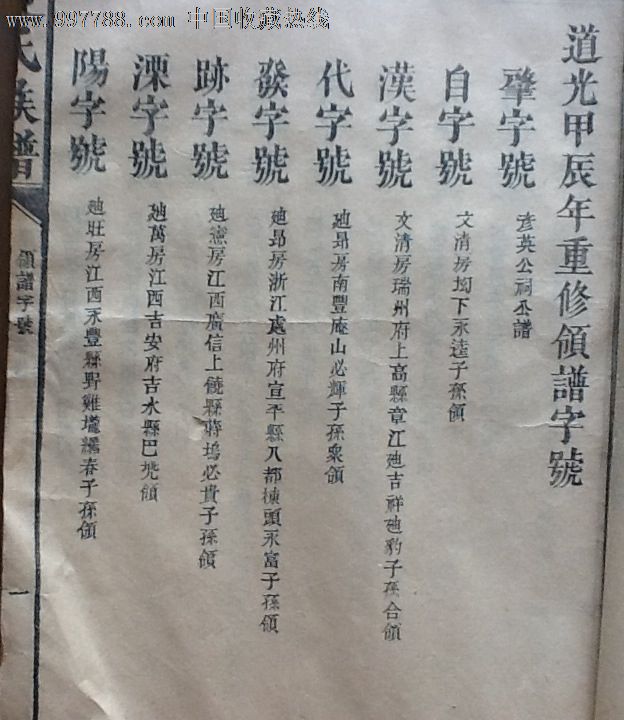 www.997788.com 中国收藏热线
道光甲辰年重修領譜字號
肇字號
彦英公祠公譜
自字號
文清房坳下永逵子孫領
漢字號
文清房瑞州府上高縣章江廸吉祥廸豹子孫合領
代字號
廸昂房南豐庵山必輝子孫衆領
發字號
廸昂房浙江處州府宣平縣八都棟頭永富子孫領
跡字號
廸憲房江西廣信上饒縣蒋塢必貴子孫領
溧字號
廸萬房江西吉安府吉水縣巴領
陽字號
廸旺房江西永豐縣野雞春子孫領
氏族譜
領譜字號
一